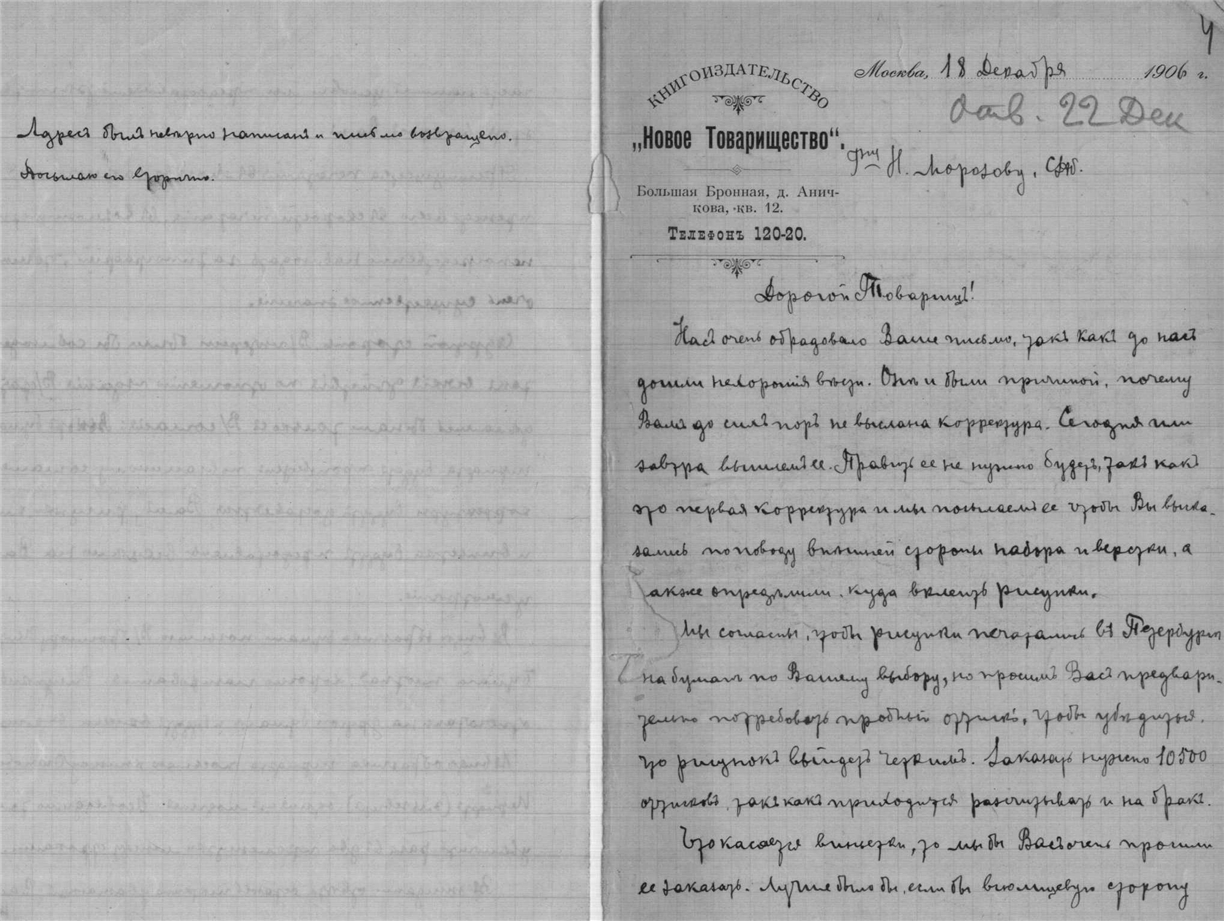 Адресъ былъ невѣрно написанъ и письмо возвращено.
Посылаю его вторично.
4
КНИГОИЗДАТЕЛЬСТВО
„Новое Товарищество“.
Большая Бронная, д. Анич-
кова, кв. 12.
Телефонъ 120-20.
Москва, 18 Декабря 1906 г.
Отв. 22 Дек
Г-ну Н. Морозову, Спб.
Дорогой Товарищъ!
Насъ очень обрадовало Ваше письмо, такъ какъ до насъ
дошли нехорошія вѣсти. Онѣ и были причиной, почему
Вамъ до сихъ поръ не выслана корректура. Сегодня или
завтра вышлемъ ее. Править ее не нужно будетъ, такъ какъ
это первая корректура и мы посылаемъ ее чтобы Вы выска-
зались по поводу внѣшней стороны набора и верстки, а
также опредѣлили куда вклеить рисунки.
Мы согласны, чтобы рисунки печатались въ Петербургѣ
на бумагѣ по Вашему выбору, но просимъ Васъ предвари-
тельно потребовать пробный оттискъ, чтобы убѣдиться,
что рисунокъ выйдетъ четкимъ. Заказать нужно 10500
оттисковъ, такъ какъ приходится разсчитывать и на бракъ.
Что касается виньетки, то мы бы Васъ очень просили
ее заказать. Лучше было бы, если бы всю лицевую сторону